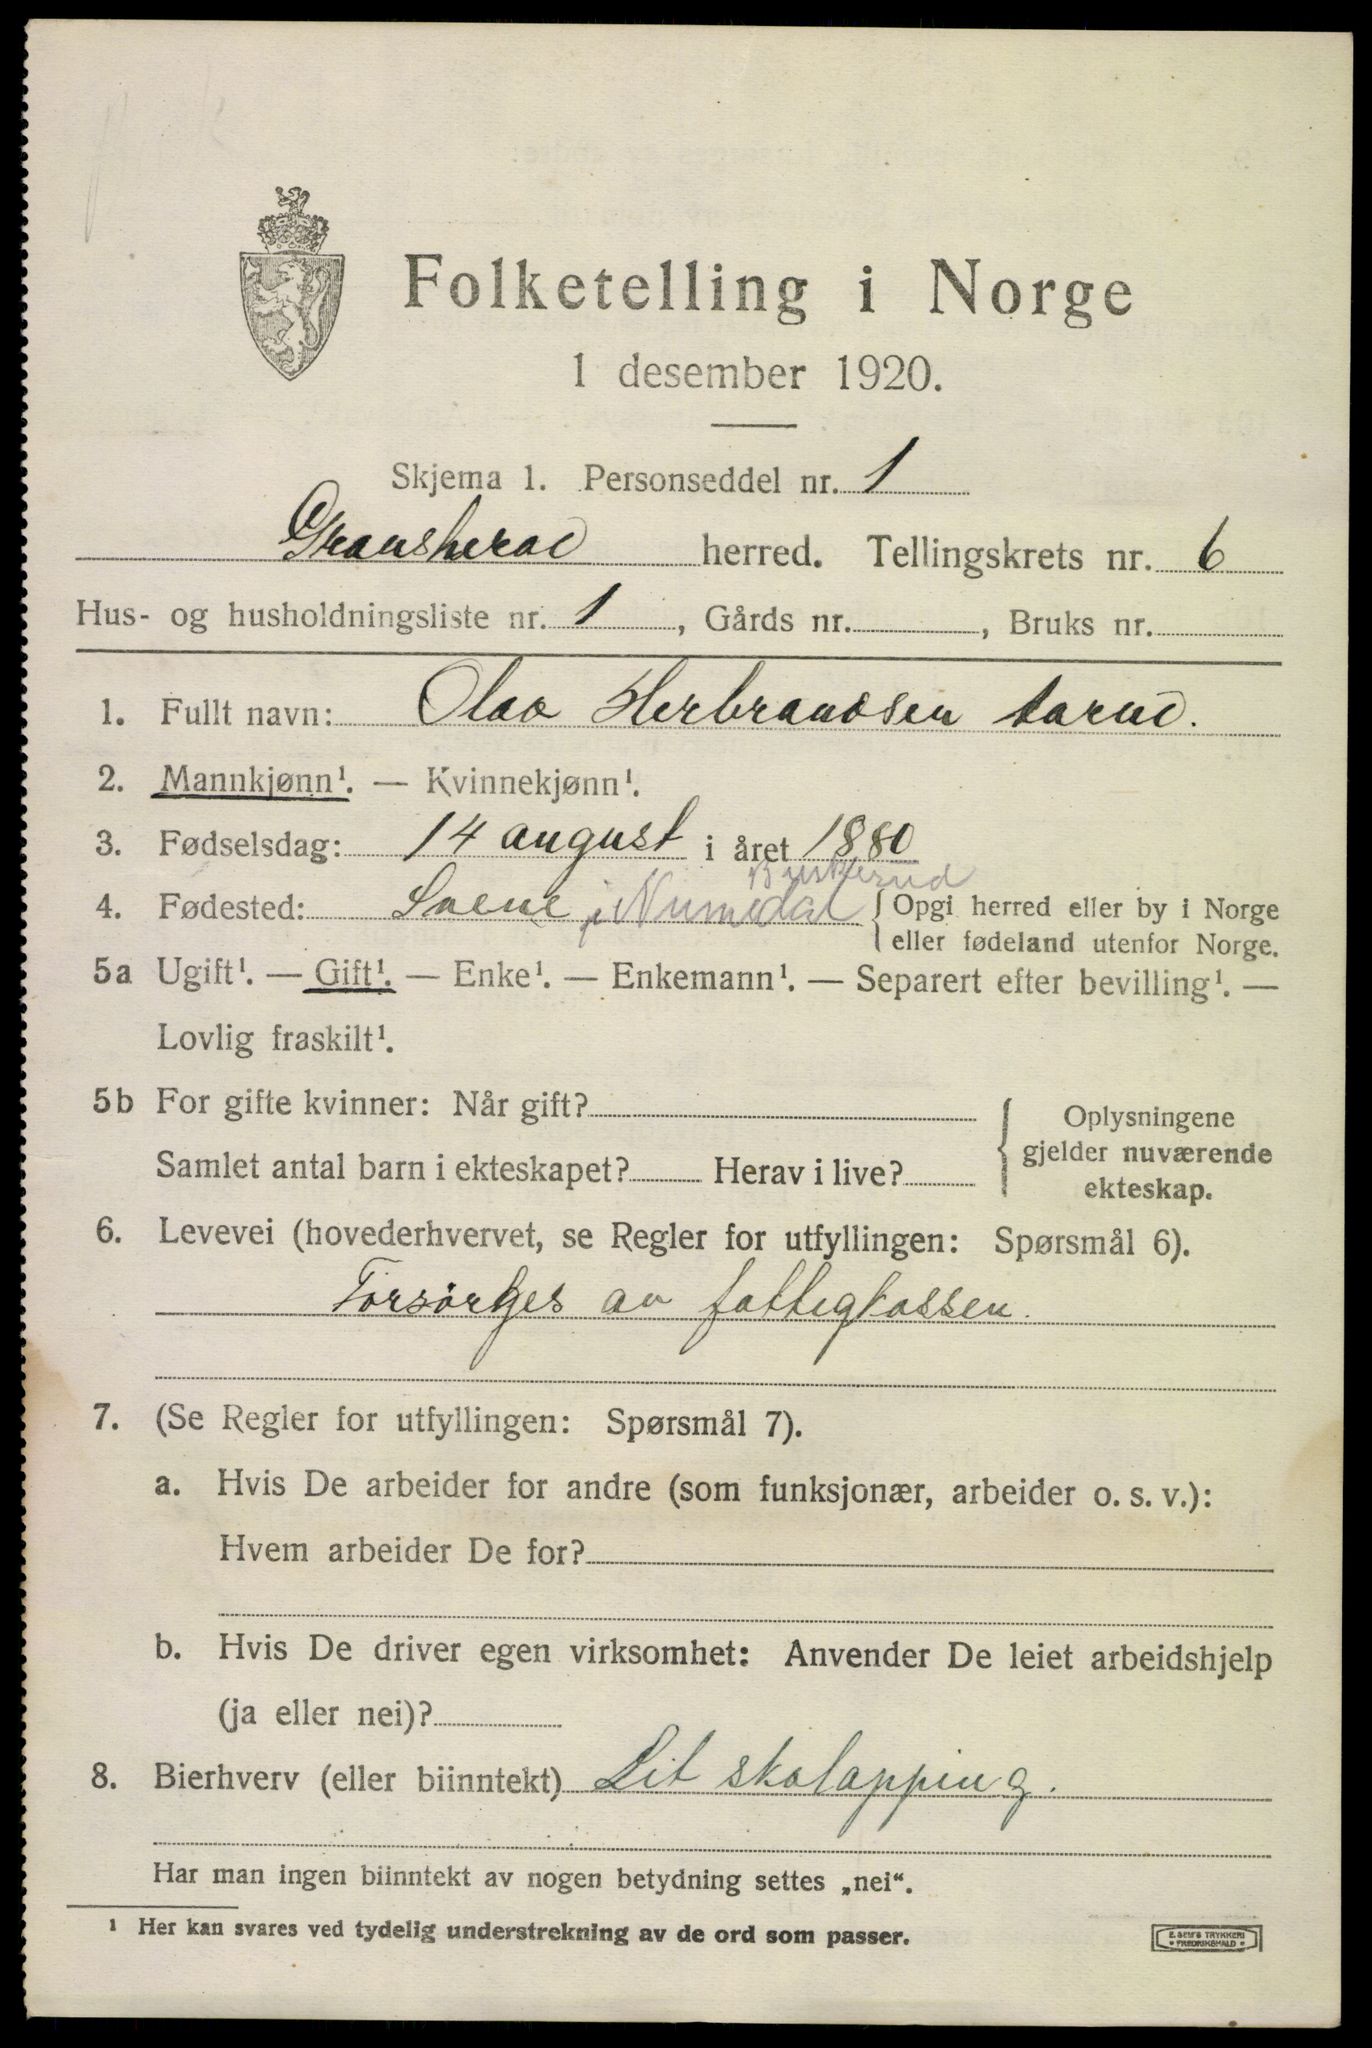 Folketelling i Norge
1 desember 1920.
Skjema 1. Personseddel nr. 1
Gransherad herred. Tellingskrets nr. 6
Hus- og husholdningsliste nr. 1, Gårds nr. , Bruks nr.
1. Fullt navn: Olav Herbrandsen
2. Mannkjønn¹. — Kvinnekjønn¹.
3. Fødselsdag: 14 august i året 1880
Buskerud
4. Fødested: Svene i Numedal { Opgi herred eller by i Norge
eller fødeland utenfor Norge.
5a Ugift¹. — Gift¹. — Enke¹. — Enkemann¹. — Separert efter bevilling¹. —
Lovlig fraskilt¹.
5b For gifte kvinner: Når gift? { Oplysningene
gjelder nuværende
ekteskap.
Samlet antal barn i ekteskapet? Herav i live?
6. Levevei (hovederhvervet, se Regler for utfyllingen: Spørsmål 6).
Forsørges av fattigkassen.
7. (Se Regler for utfyllingen: Spørsmål 7).
a. Hvis De arbeider for andre (som funksjonær, arbeider o. s. v.):
Hvem arbeider De for?
b. Hvis De driver egen virksomhet: Anvender De leiet arbeidshjelp
(ja eller nei)?
8. Bierhverv (eller biinntekt) Lit skolapping.
Har man ingen biinntekt av nogen betydning settes „nei“.
¹ Her kan svares ved tydelig understrekning av de ord som passer.
E. SEM'S TRYKKERI
* FREDRIKSHALD *